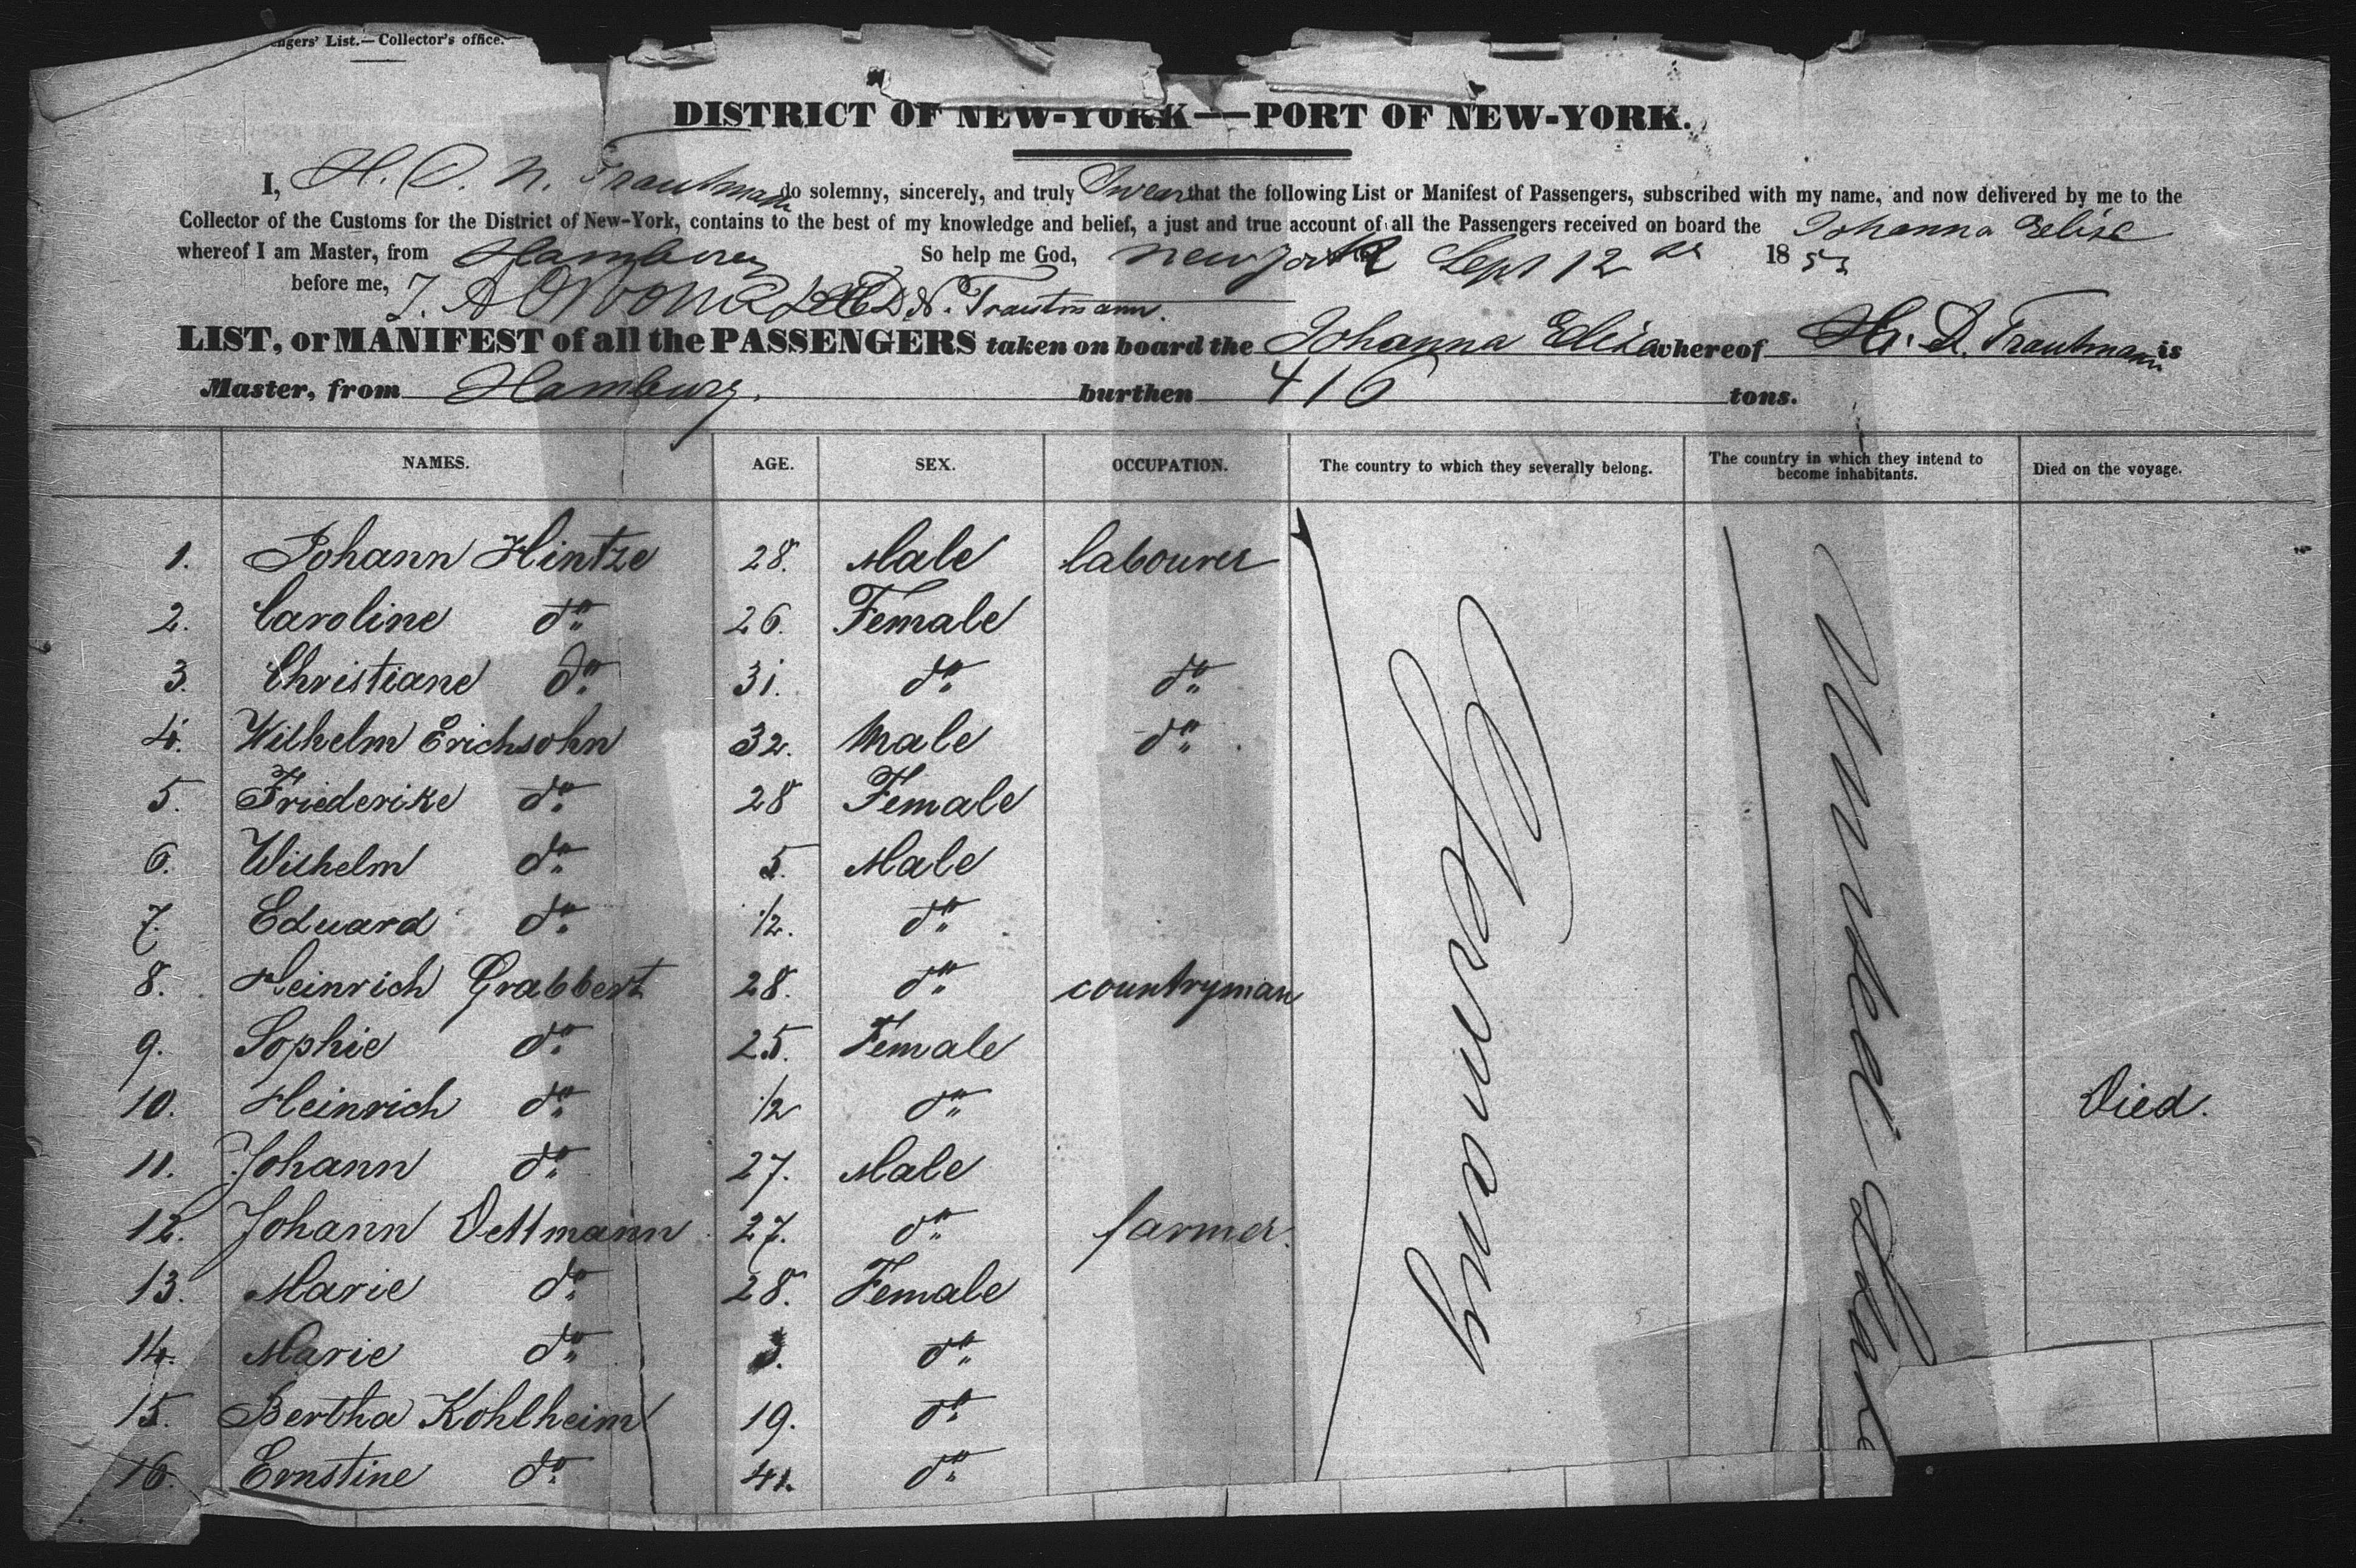 engers' List.—Collector's office.
DISTRICT OF NEW-YORK—PORT OF NEW-YORK.
I, H. D. N. Trautmann do solemny, sincerely, and truly Swear that the following List or Manifest of Passengers, subscribed with my name, and now delivered by me to the
Collector of the Customs for the District of New-York, contains to the best of my knowledge and belief, a just and true account of all the Passengers received on board the Johanna Elise
whereof I am Master, from Hamburg So help me God, New York Sept 12 1853
before me, N. Trautmann.
LIST, or MANIFEST of all the PASSENGERS taken on board the Johanna Elise whereof H. D. Trautmann is
Master, from Hamburg. burthen 416 tons.
NAMES. AGE. SEX. OCCUPATION. The country to which they severally belong. The country in which they intend to become inhabitants. Died on the voyage.
1. Johann Hintze 28. Male labourer
2. Caroline do 26. Female
3. Christiane do 31. do do
4. Wilhelm Erichsohn 32. Male do
5. Friederike do 28 Female
6. Wilhelm do 5. Male
7. Eduard do 1/2. do
8. Heinrich Grabbert 28. do countryman
9. Sophie do 25. Female
10. Heinrich do 1/2 do Died.
11. Johann do 27. Male
12. Johann Dettmann 27. do farmer.
13. Marie do 28. Female
14. Marie do 3. do
15. Bertha Kohlheim 19. do
16. Ernstine do 41. do
Germany
United States